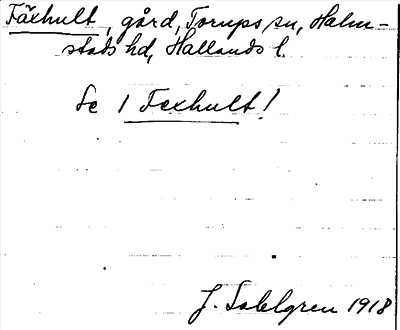 Fäxhult, gård, Torups sn, Halm-
stads hd, Hallands l.
Se 1 Fexhult!
J. Sahlgren 1918